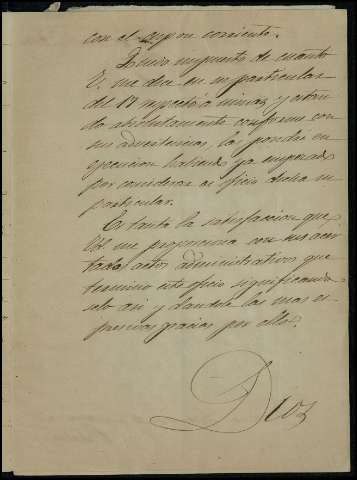 con el Aypon corriente.
Quedo impuesto de cuanto
V. me dice en su particular
del 13 respecto a minas y estan
do absolutamente conforme con
sus advertencias, las pondré en
ejecucion habiendo ya empezado
por considerar de oficio dicha su
particular.
Es tanta la satisfaccion que
Vd. me proporciona con sus acer
tados actos administrativos que
termino este oficio significando
selo asi y dandole las mas es
presivas gracias por ellos.
Dios